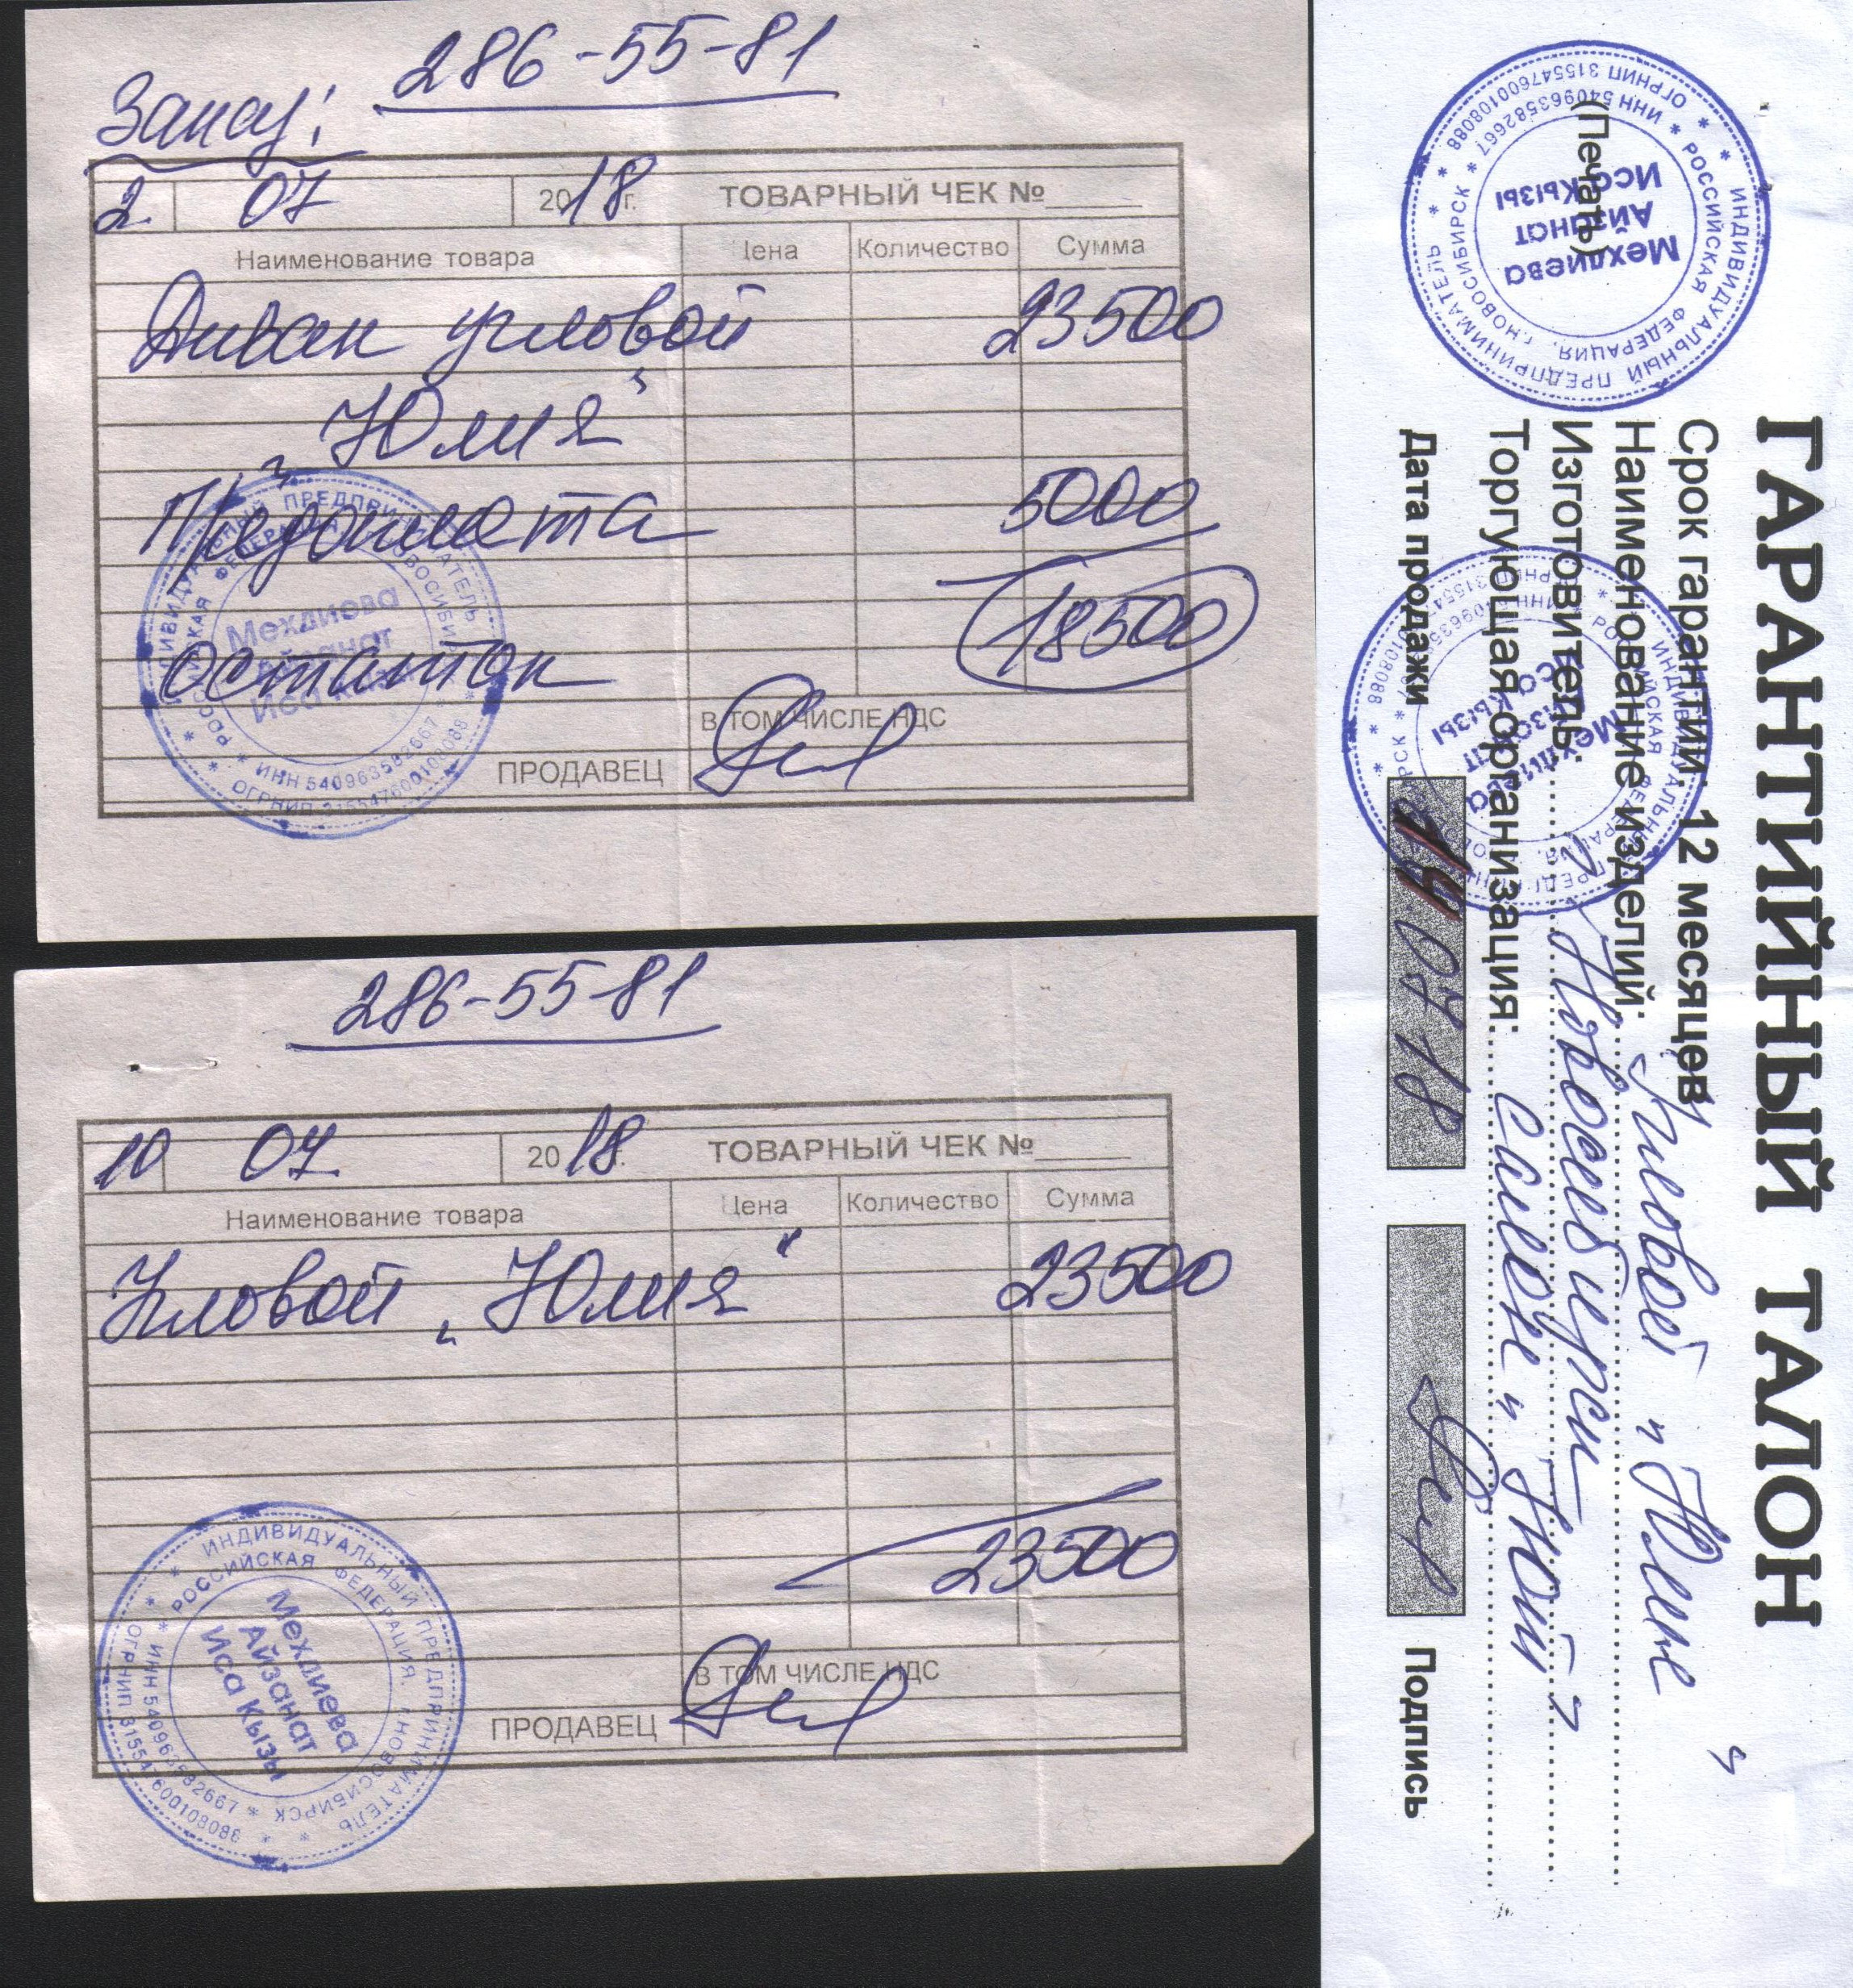 286-55-81
Заказ:
2. 07 2018 г. ТОВАРНЫЙ ЧЕК №
Наименование товара Цена Количество Сумма
Диван угловой 23500
„Юлия“
Предоплата 5000
остаток 18500
В ТОМ ЧИСЛЕ НДС
ПРОДАВЕЦ
ИНДИВИДУАЛЬНЫЙ ПРЕДПРИНИМАТЕЛЬ
РОССИЙСКАЯ ФЕДЕРАЦИЯ, г.НОВОСИБИРСК
Мехдиева
Айзанат
Иса Кызы
ИНН 540963582667
ОГРНИП 315547600108088
286-55-81
10 07 2018 г. ТОВАРНЫЙ ЧЕК №
Наименование товара Цена Количество Сумма
Угловой „Юлия“ 23500
23500
В ТОМ ЧИСЛЕ НДС
ПРОДАВЕЦ
ИНДИВИДУАЛЬНЫЙ ПРЕДПРИНИМАТЕЛЬ
РОССИЙСКАЯ ФЕДЕРАЦИЯ, г.НОВОСИБИРСК
Мехдиева
Айзанат
Иса Кызы
ИНН 540963582667
ОГРНИП 315547600108088
ГАРАНТИЙНЫЙ ТАЛОН
Срок гарантии: 12 месяцев
Наименование изделий: Угловой "Юлия"
Изготовитель: г. Новосибирск
Торгующая организация: салон "Уют"
Дата продажи 07 18 Подпись
(Печать)
ИНДИВИДУАЛЬНЫЙ ПРЕДПРИНИМАТЕЛЬ
РОССИЙСКАЯ ФЕДЕРАЦИЯ, г.НОВОСИБИРСК
Мехдиева
Айзанат
Иса Кызы
ИНН 540963582667
ОГРНИП 315547600108088
ИНДИВИДУАЛЬНЫЙ ПРЕДПРИНИМАТЕЛЬ
РОССИЙСКАЯ ФЕДЕРАЦИЯ
Мехдиева
Айзанат
Иса Кызы